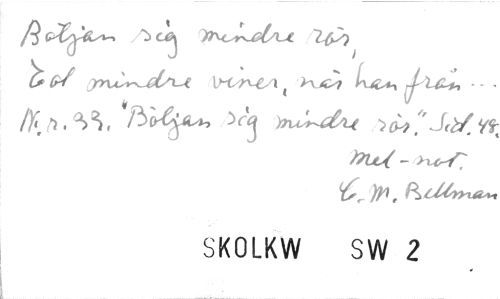 Böljan sig mindre rör,
Eol mindre viner, när han från ...
N.r. 33. "Böljan sig mindre rör". Sid. 48.
Mel-not.
C. M. Bellman
SKOLKW SW 2